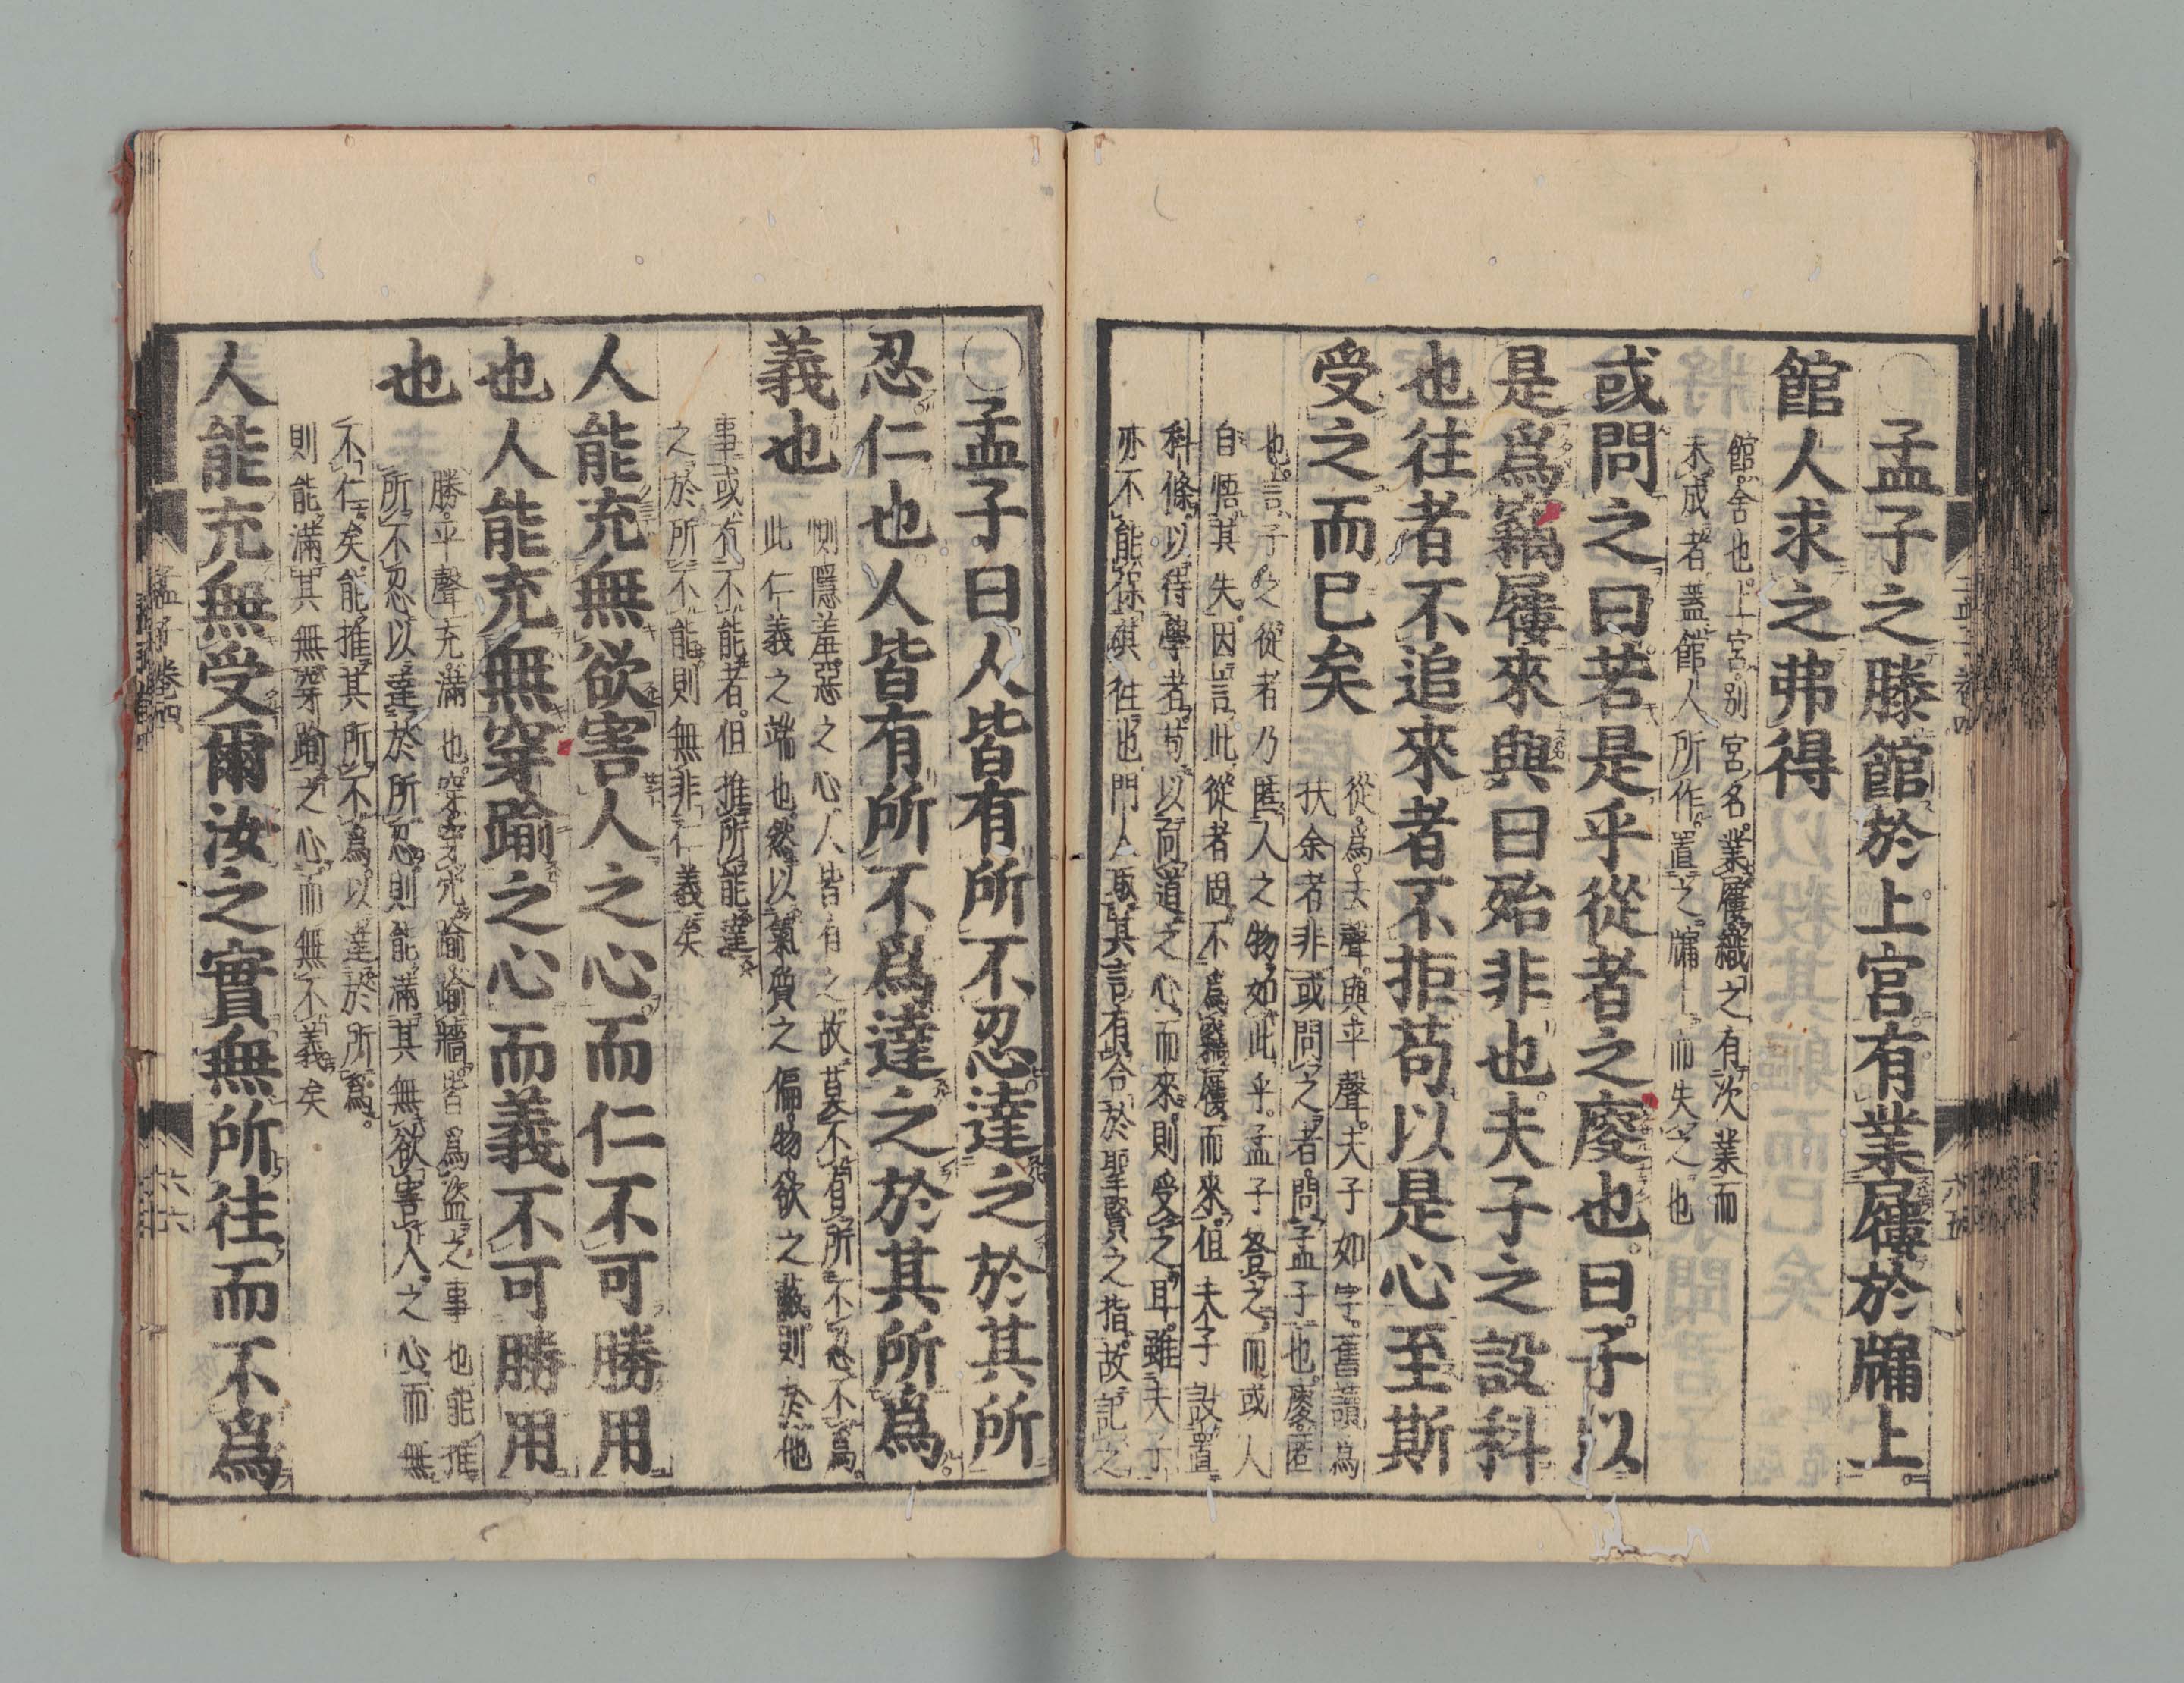 ○孟子之滕館於上宮有業屨於牖上
館人求之弗得
館舍也上宮別宮名業屨織之有次業而
未成者蓋館人所作置之牖上而失之也
或問之曰若是乎從者之廋也曰子以
是爲竊屨來與曰殆非也夫子之設科
也往者不追來者不拒苟以是心至斯
受之而已矣
從爲去聲與平聲夫子如字舊讀爲
扶余者非或問之者問孟子也廋匿
也言子之從者乃匿人之物如此乎孟子答之而或人
自悟其失因言此從者固不爲竊屨而來但夫子設置
科條以待學者苟以向道之心而來則受之耳雖夫子
亦不能保其往也門人取其言有合於聖賢之指故記之
孟子卷四
六十五
○孟子曰人皆有所不忍達之於其所
忍仁也人皆有所不爲達之於其所爲
義也
惻隱羞惡之心人皆有之故莫不有所不忍不爲
此仁義之端也然以氣質之偏物欲之蔽則於他
事或有不能者但推所能達
之於所不能則無非仁義矣
人能充無欲害人之心而仁不可勝用
也人能充無穿踰之心而義不可勝用
也
勝平聲充滿也穿穿穴踰踰牆皆爲盜之事也能推
所不忍以達於所忍則能滿其無欲害人之心而無
不仁矣能推其所不爲以達於所爲
則能滿其無穿踰之心而無不義矣
人能充無受爾汝之實無所往而不爲
孟子卷四
六十六